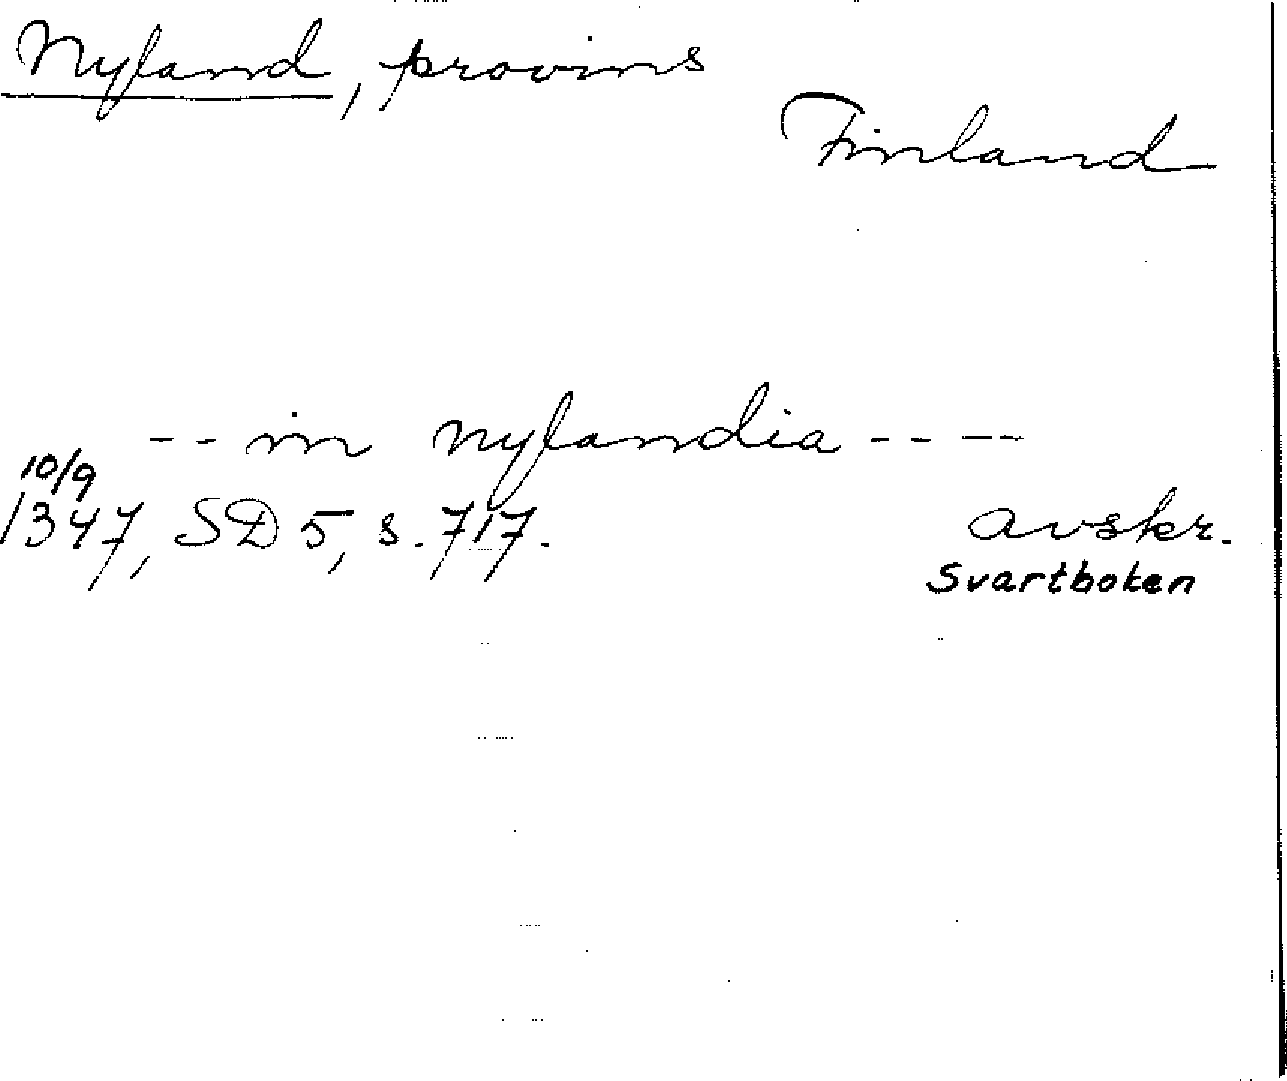 Nyland, provins
Finland
-- in nylandia -- --
10/9
1347, SD 5, s. 717. avskr.
Svartboken